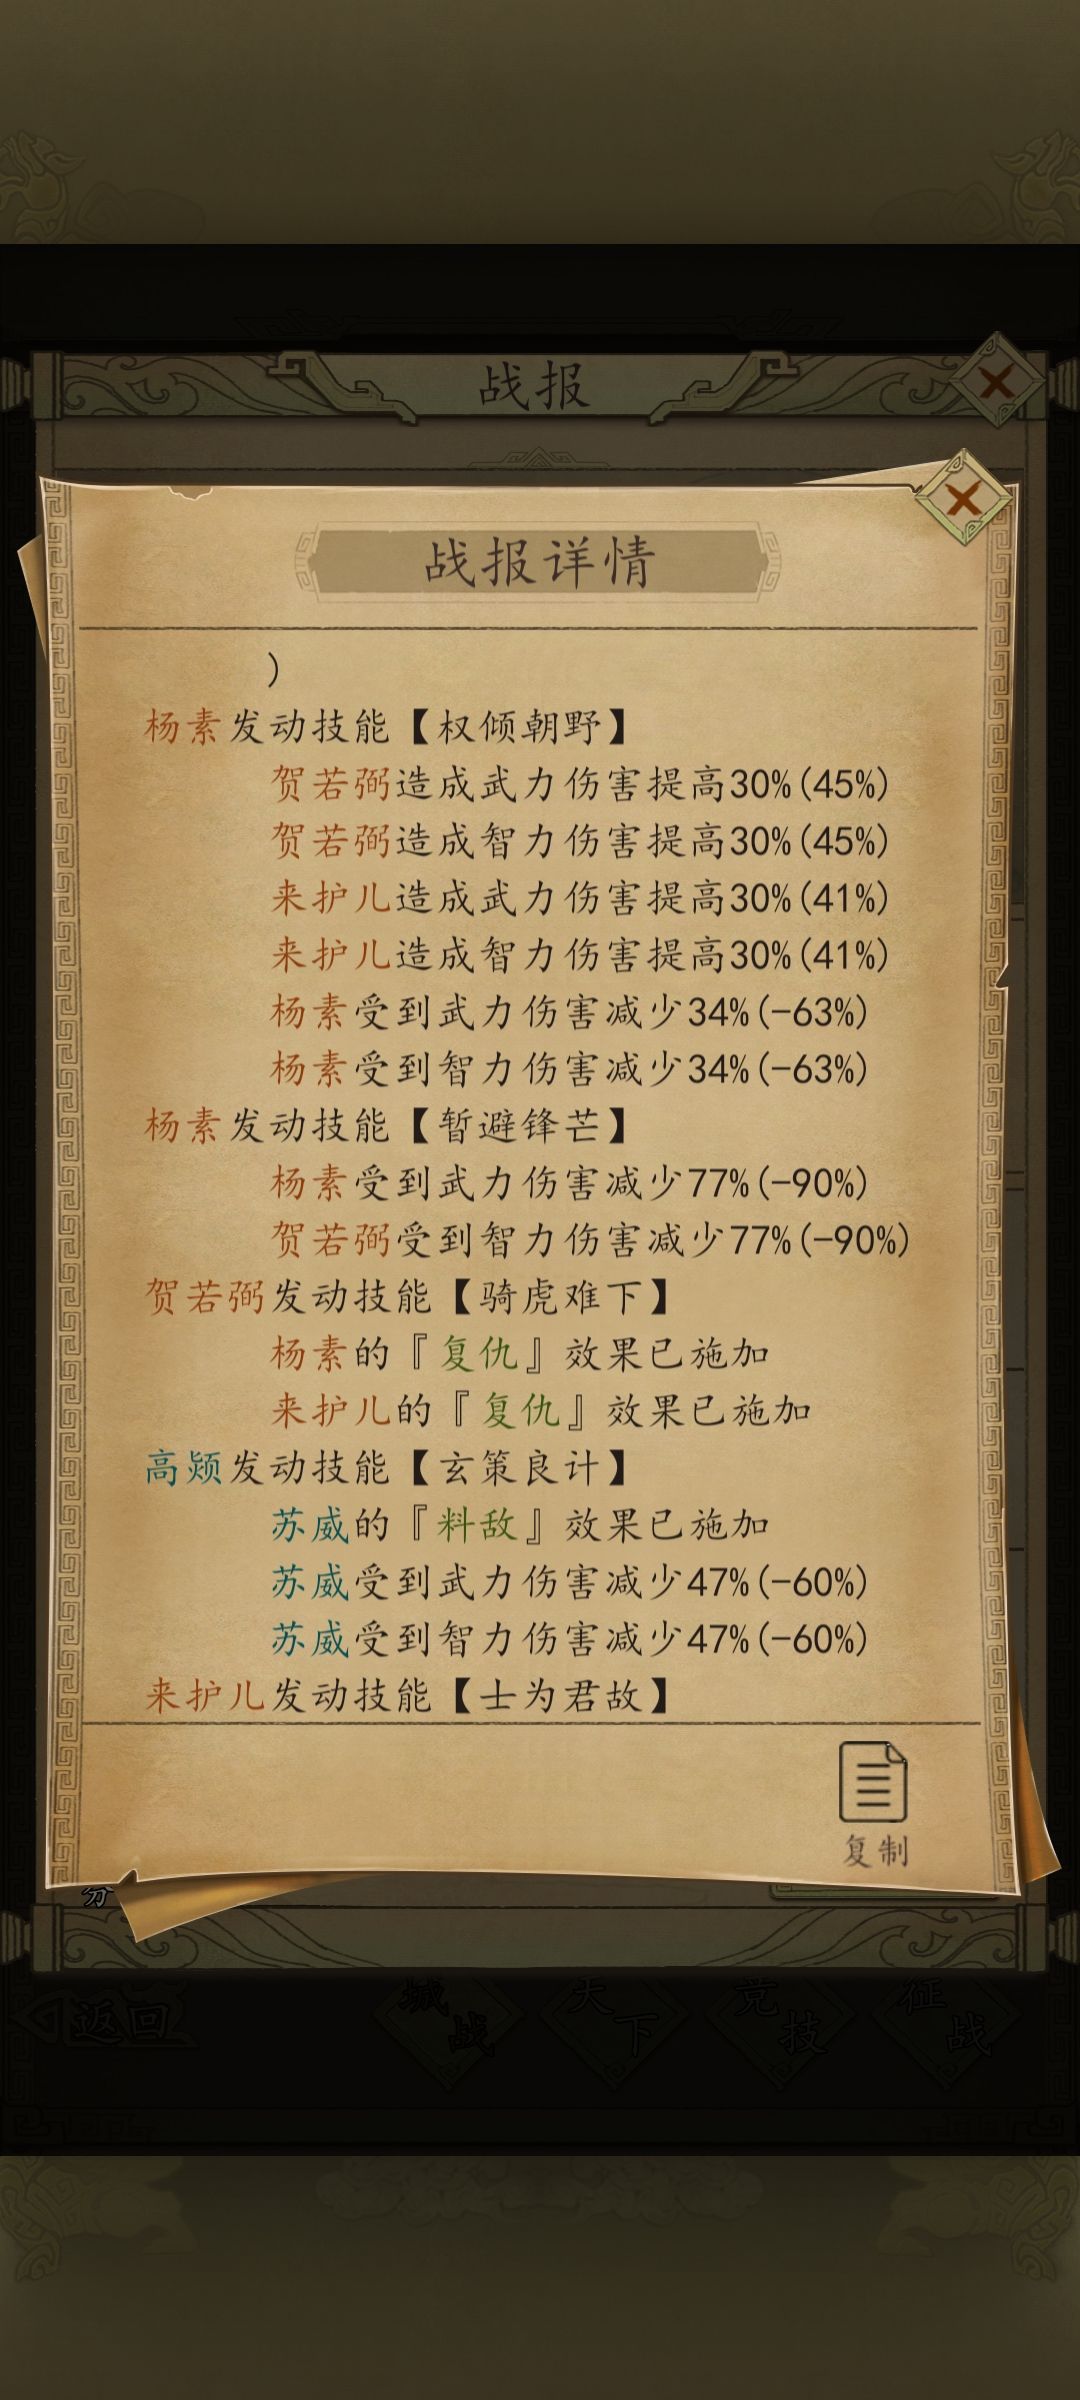 战报
战报详情
）
杨素发动技能【权倾朝野】
贺若弼造成武力伤害提高30%(45%)
贺若弼造成智力伤害提高30%(45%)
来护儿造成武力伤害提高30%(41%)
来护儿造成智力伤害提高30%(41%)
杨素受到武力伤害减少34%(-63%)
杨素受到智力伤害减少34%(-63%)
杨素发动技能【暂避锋芒】
杨素受到武力伤害减少77%(-90%)
贺若弼受到智力伤害减少77%(-90%)
贺若弼发动技能【骑虎难下】
杨素的『复仇』效果已施加
来护儿的『复仇』效果已施加
高颎发动技能【玄策良计】
苏威的『料敌』效果已施加
苏威受到武力伤害减少47%(-60%)
苏威受到智力伤害减少47%(-60%)
来护儿发动技能【士为君故】
复制
分
返回 城战 天下 竞技 征战